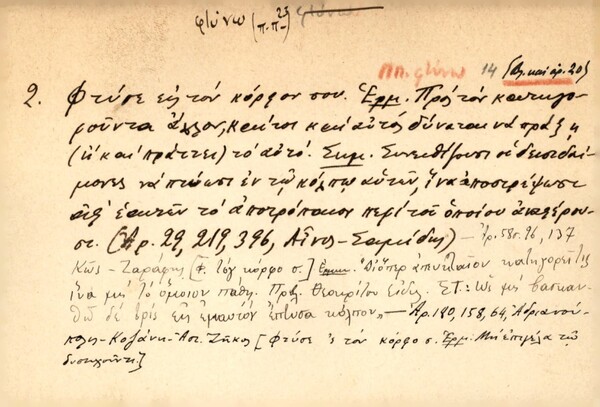 φτύνω (π.π. 23) φτύνω
Ππ. φτύνω 14 (βλ. καί ἀρ. 20)
2. Φτύσε εἰς τόν κόρφον σου. Ἑρμ. Πρός τόν κατηγο-
ροῦντα ἄλλον, καίτοι καί αὐτός δύναται νά πράξῃ
(ἤ καί πράττει) τό αὐτό. Σημ. Συνειθίζουσι οἱ δεισιδαί-
μονες νά πτύωσι ἐν τῷ κόλπῳ αὐτῶν, ἵνα ἀποστρέψωσι
ἀφ' ἑαυτῶν τό ἀποτρόπαιον περί τοῦ ὁποίου ἀναφέρου-
σι. (Ἀρ. 29, 219, 396, Αἶνος - Σαμίδης) — Ἀρ. 58 σ. 96, 137
Κῶς - Ζαράφτης [Φ. τόγ κόρφο σ.] Ἑρμ. "Διόπερ κατηγορεῖ τις
ἵνα μή τό ὅμοιον πάθῃ. Πρβλ. Θεοκρίτου Εἰδύλ. ΣΤ: ὡς μή βασκαν-
θῶ δέ τρίς εἰς ἐμαυτόν ἔπτυσα κόλπον" — Ἀρ. 190, 158, 64, Ἀδριανού-
πολις - Κοζάνη - Ἀστ. Ζήκος [Φτύσε 'ς τόν κόρφο σ. Ἑρμ. Μή ἐπιγέλα τῷ
δυστυχοῦντι.]